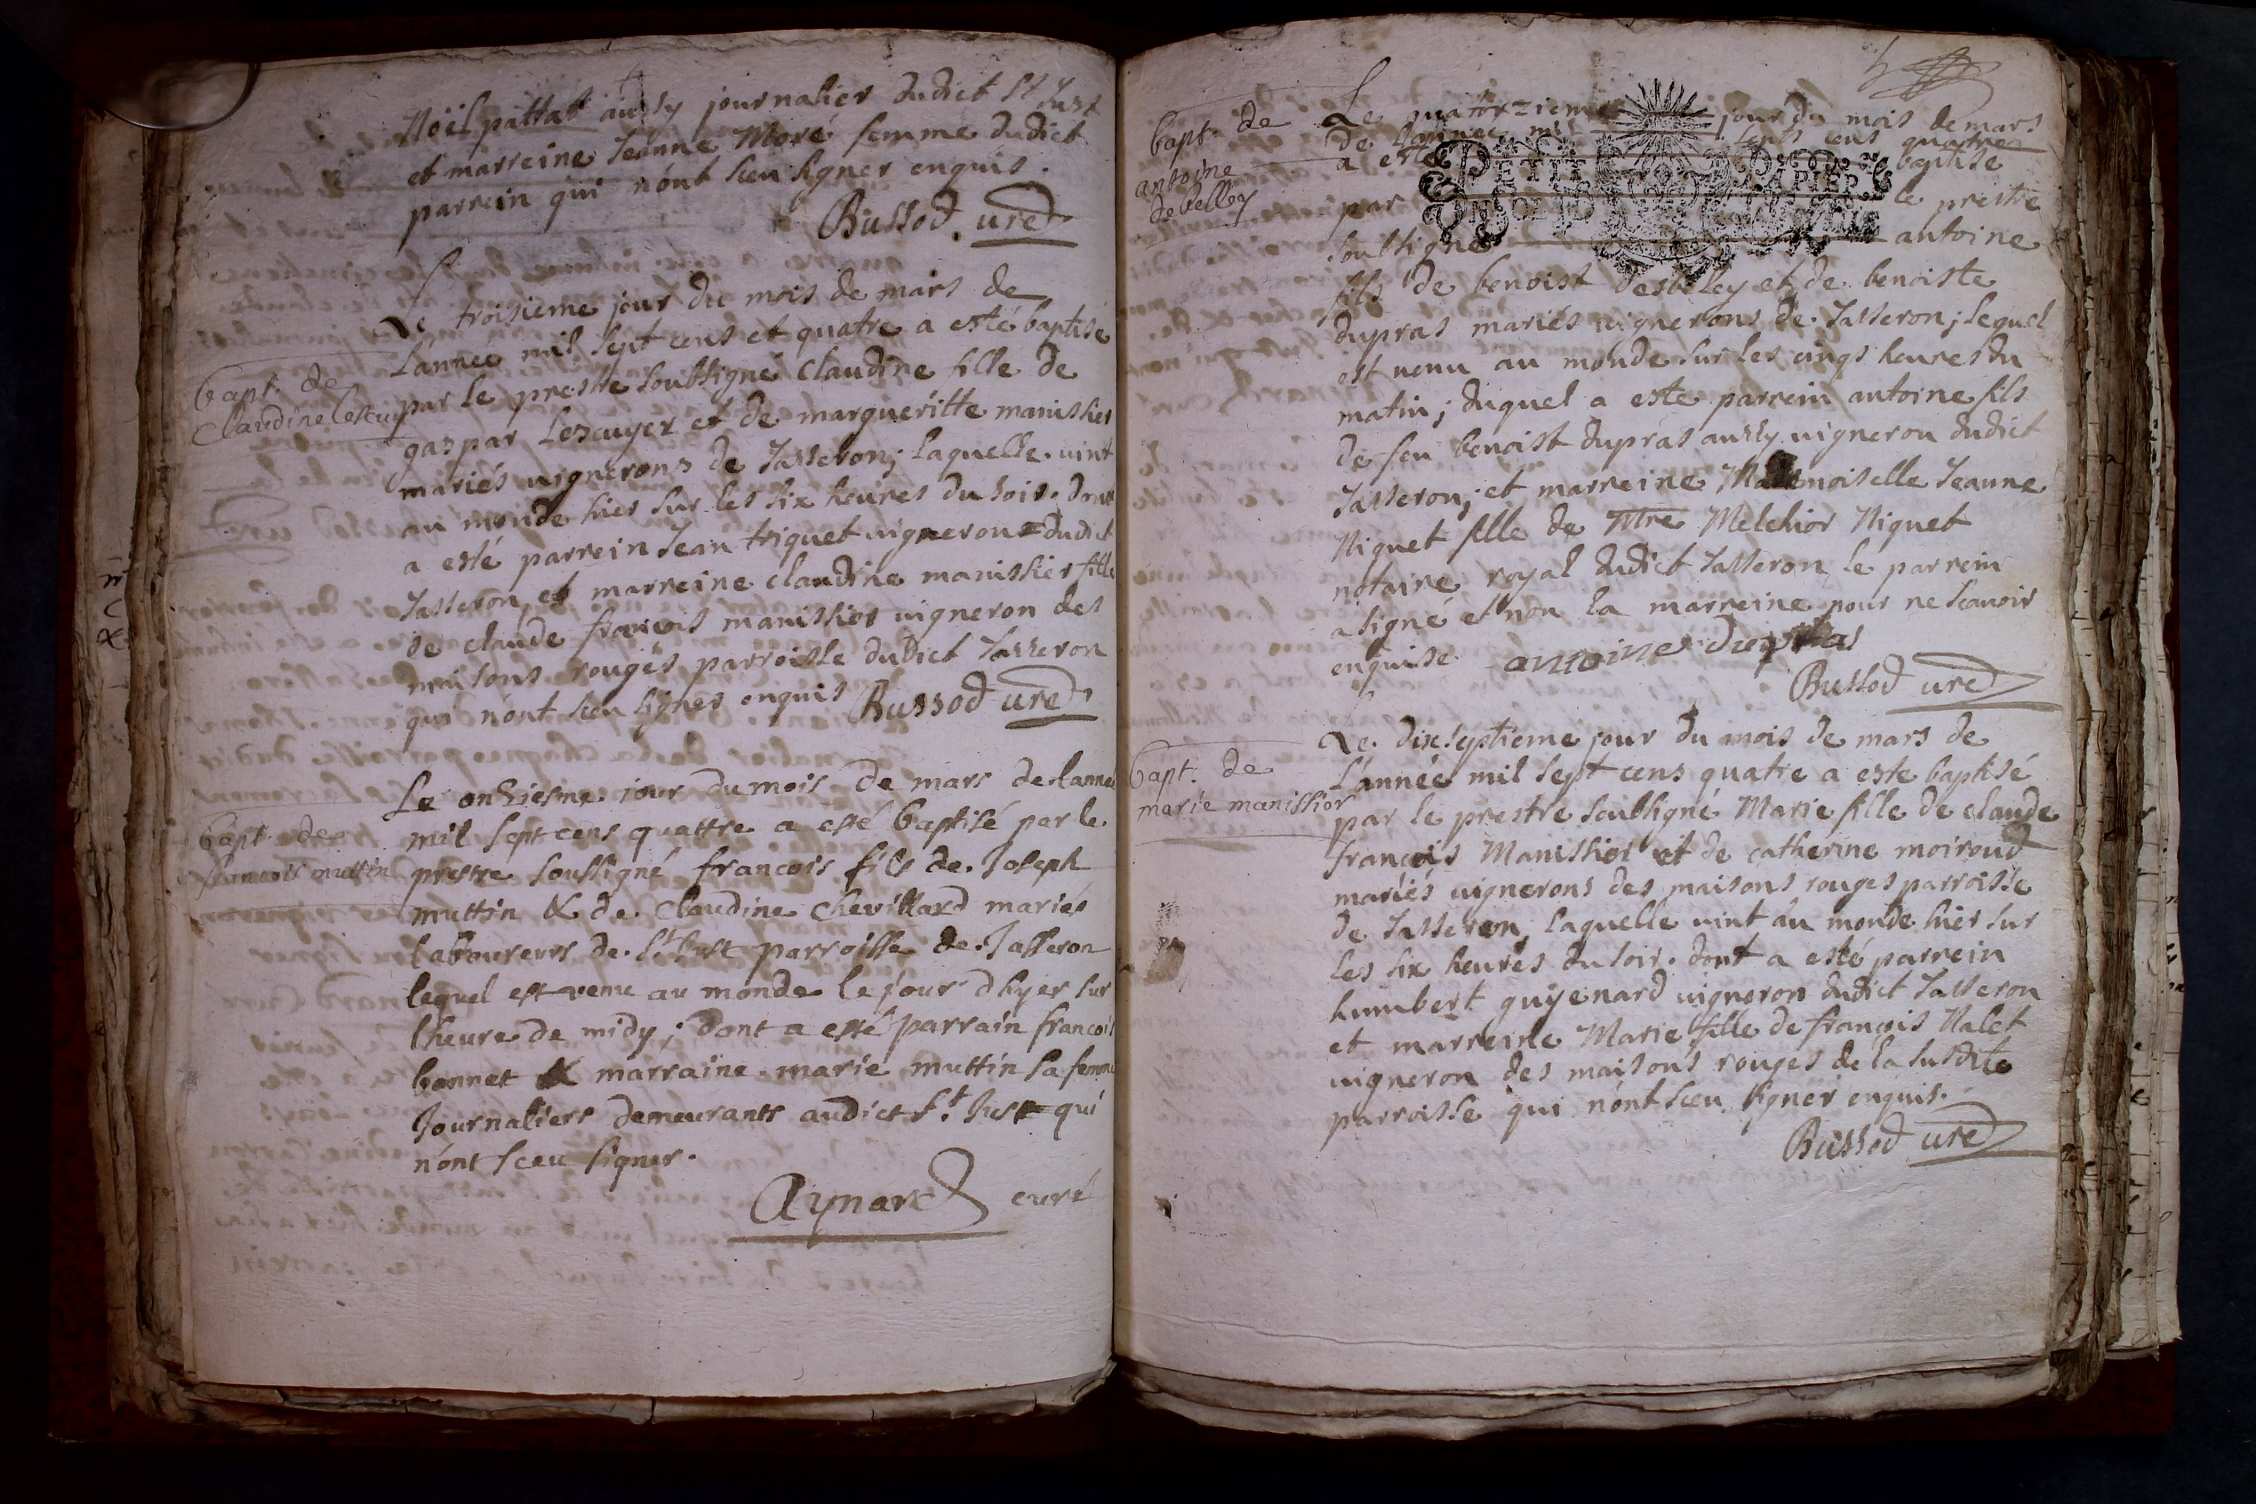 Noël pattat aussy journalier dudict St Just
et marreine Jeanne Moré femme dudict
parrein qui n'ont sceu signer enquis.
Bussod. vire
Le troisieme jour du mois de mars de
L'année mil sept cens et quatre a esté baptise
bapt. de
Claudine lescuy
par le prestre soubsigné Claudine fille de
gaspar Lescuyer et de margueritte manissier
mariés vignerons de Jasseron; laquelle vint
au monde hier sur les six heures du soir. dont
a esté parrein Jean triquet vigneron dudict
Jasseron, et marreine claudine manissier fille
de claude françois manissier vigneron des
maisons rouges parroisse dudict Jasseron
qui n'ont sceu signer enquis Bussod vire
Le onziesme jour du mois de mars de lannee
bapt. de
francois muttin
mil sept cens quattre a esté baptisé par le
prestre soussigné francois fils de Joseph
muttin & de Claudine Chevillard mariés
laboureurs de St Just parroisse de Jasseron
lequel est venu au monde le jour d'hyer sur
lheure de midy; dont a esté parrain francois
bonnet & marraine marie muttin sa femme
Journaliers demeurants audict St Just qui
n'ont sceu signer.
Aynard curé
bapt. de
antoine
debelley
Le quatorzieme jour du mois de mars
de l'année mil sept cens quatre
a esté baptise
PETIT PAPIER
par le prestre
soubsigné antoine
fils de benoist desbelley et de benoiste
dupras mariés vignerons de Jasseron; lequel
est venu au monde sur les cinqs heures du
matin; duquel a este parrein antoine fils
de feu benoist dupras aussy vigneron dudict
Jasseron; et marreine Mademoiselle Jeanne
Niquet fille de Mtre Melchior Niquet
notaire royal dudict Jasseron, le parrein
a signé et non la marreine pour ne scavoir
enquise. antoine dupras
Bussod vire
Le dixseptieme jour du mois de mars de
bapt. de
marie manissier
L'année mil sept cens quatre a este baptisé
par le prestre soubsigné Marie fille de claude
françois Manissier et de catherine moiroud
mariés vignerons des maisons rouges parroisse
de Jasseron, laquelle vint au monde hier sur
les six heures du soir. dont a esté parrein
humbert guyenard vigneron dudict Jasseron
et marreine Marie fille de françois Nalet
vigneron des maisons rouges de la susdite
parroisse qui n'ont sceu signer enquis.
Bussod vire